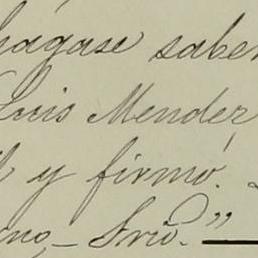 hagase saber
Luis Mendez
y firmó.
no,- Srio."